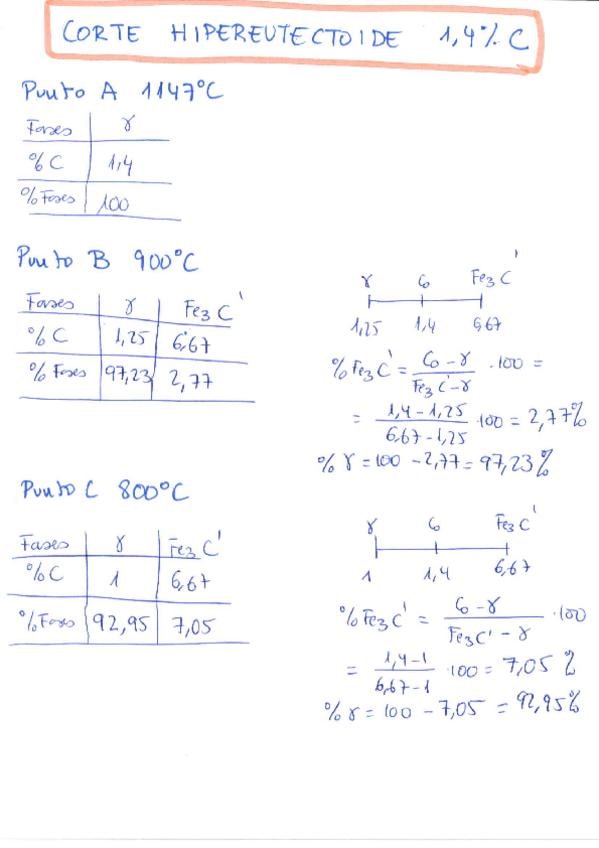 CORTE HIPEREUTECTOIDE 1,4% C
Punto A 1147°C
Fases γ
% C 1,4
% Fases 100
Punto B 900°C
Fases γ Fe3 C'
% C 1,25 6,67
% Fases 97,23 2,77
γ C0 Fe3 C'
1,25 1,4 6,67
% Fe3 C' = C0 - γ / Fe3 C' - γ · 100 =
= 1,4 - 1,25 / 6,67 - 1,25 · 100 = 2,77%
% γ = 100 - 2,77 = 97,23%
Punto C 800°C
Fases γ Fe3 C'
% C 1 6,67
% Fases 92,95 7,05
γ C0 Fe3 C'
1 1,4 6,67
% Fe3 C' = C0 - γ / Fe3 C' - γ · 100
= 1,4 - 1 / 6,67 - 1 · 100 = 7,05 %
% γ = 100 - 7,05 = 92,95%